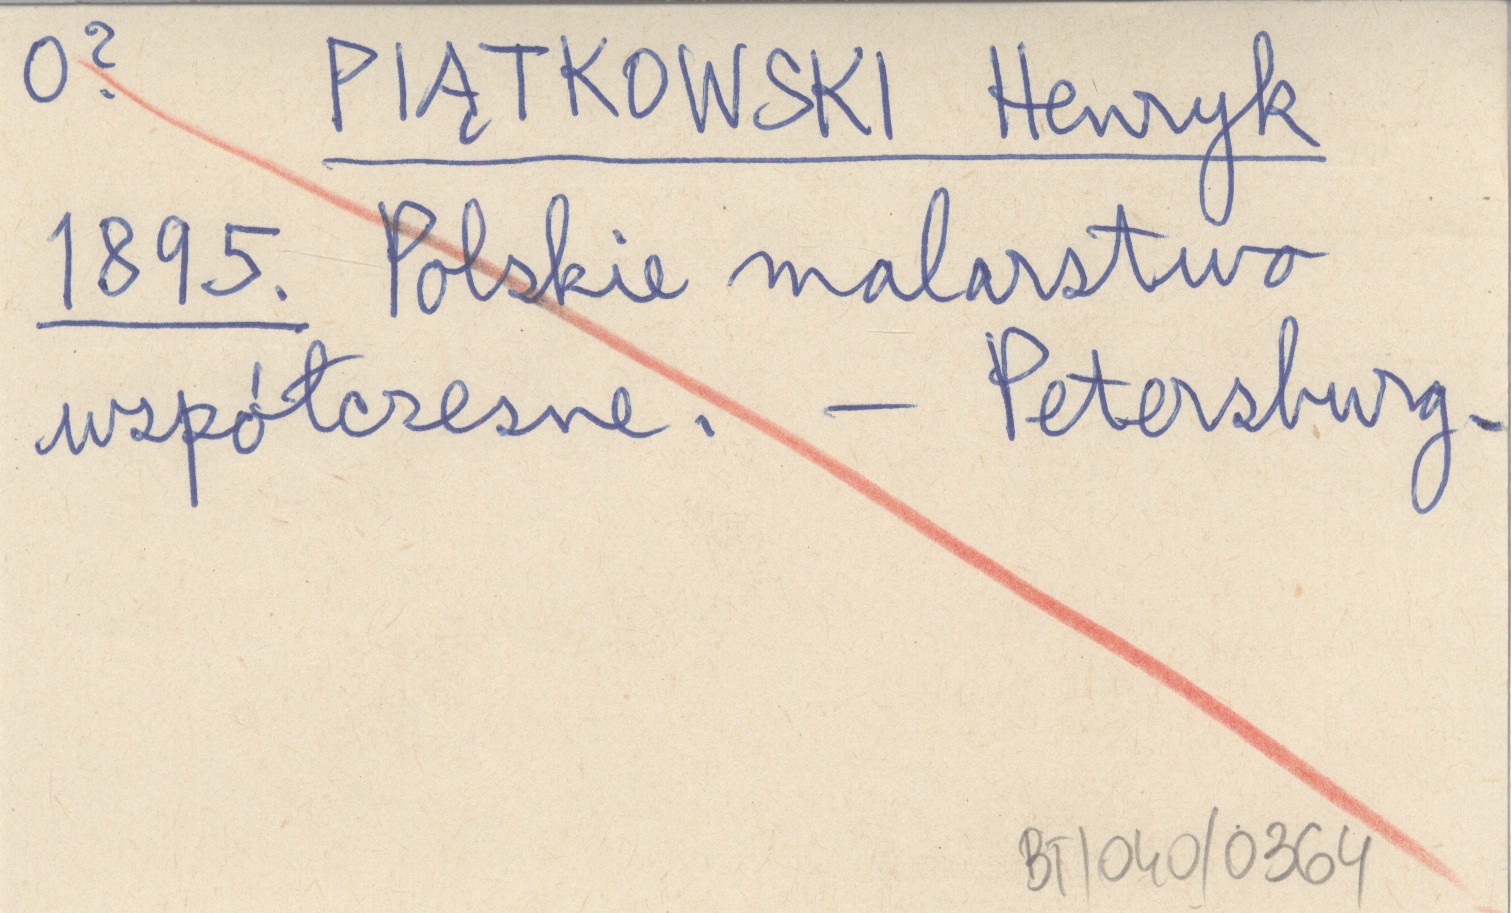 O? PIĄTKOWSKI Henryk
1895. Polskie malarstwo
współczesne. — Petersburg.
BT/040/0364